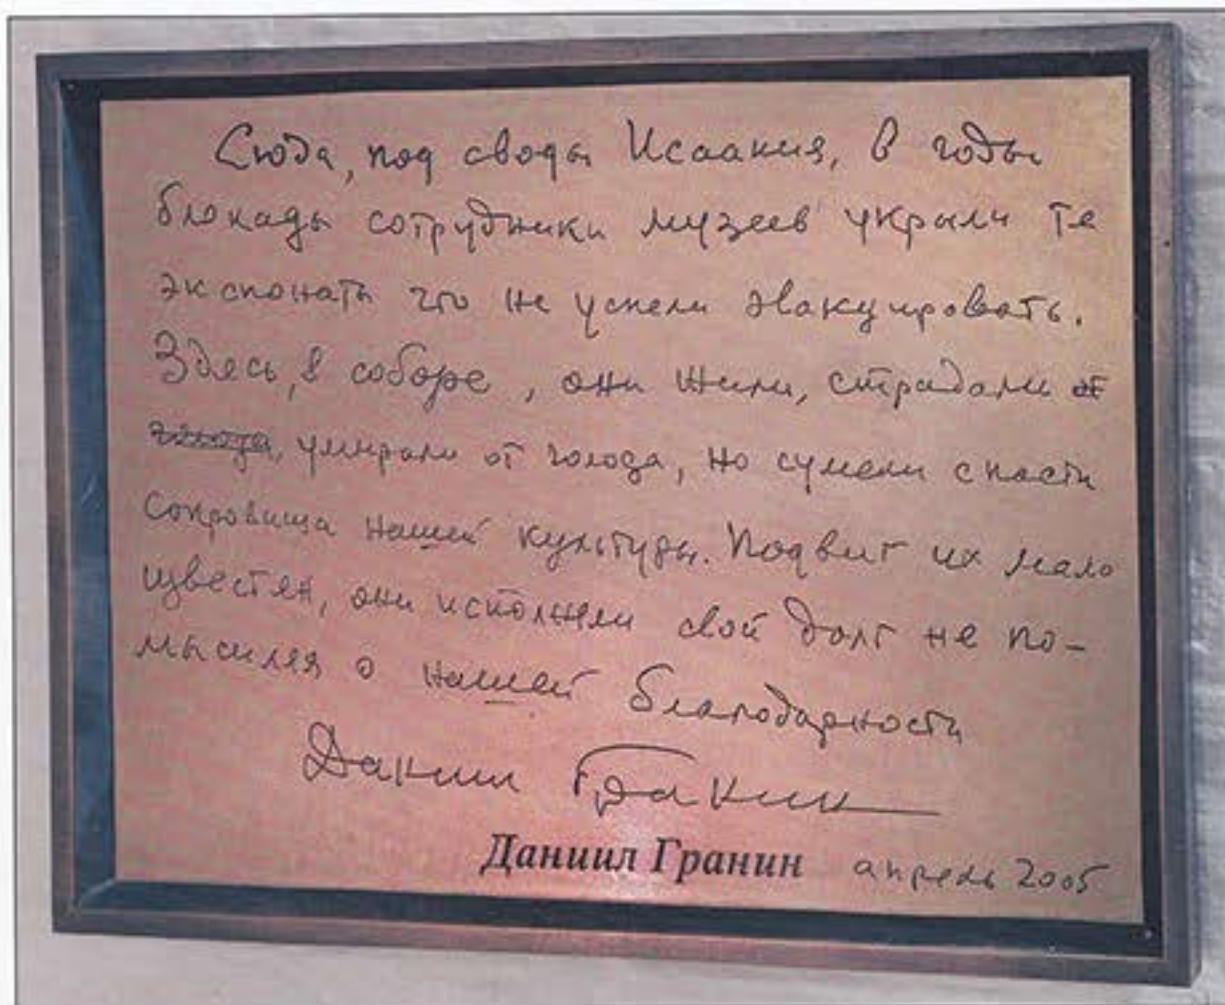 Сюда, под своды Исаакия, в годы
блокады сотрудники музеев укрыли те
экспонаты что не успели эвакуировать.
Здесь, в соборе, они жили, страдали от
голода, умирали от голода, но сумели спасти
сокровища нашей культуры. Подвиг их мало
известен, они исполняли свой долг не по-
мысляя о нашей благодарности
Даниил Гранин
Даниил Гранин апрель 2005